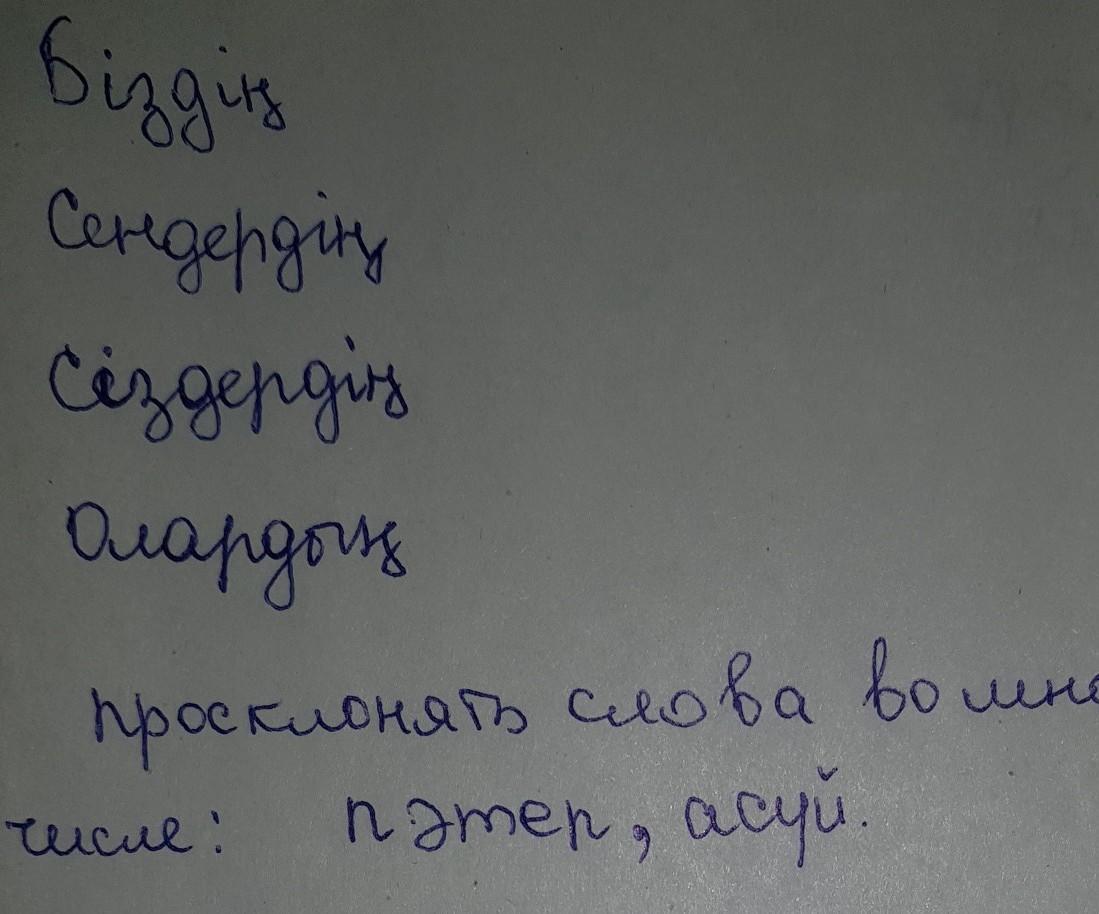 Біздің
Сендердің
Сіздердің
Олардың
просклонять слова во мно
числе: пәтер, асуй.